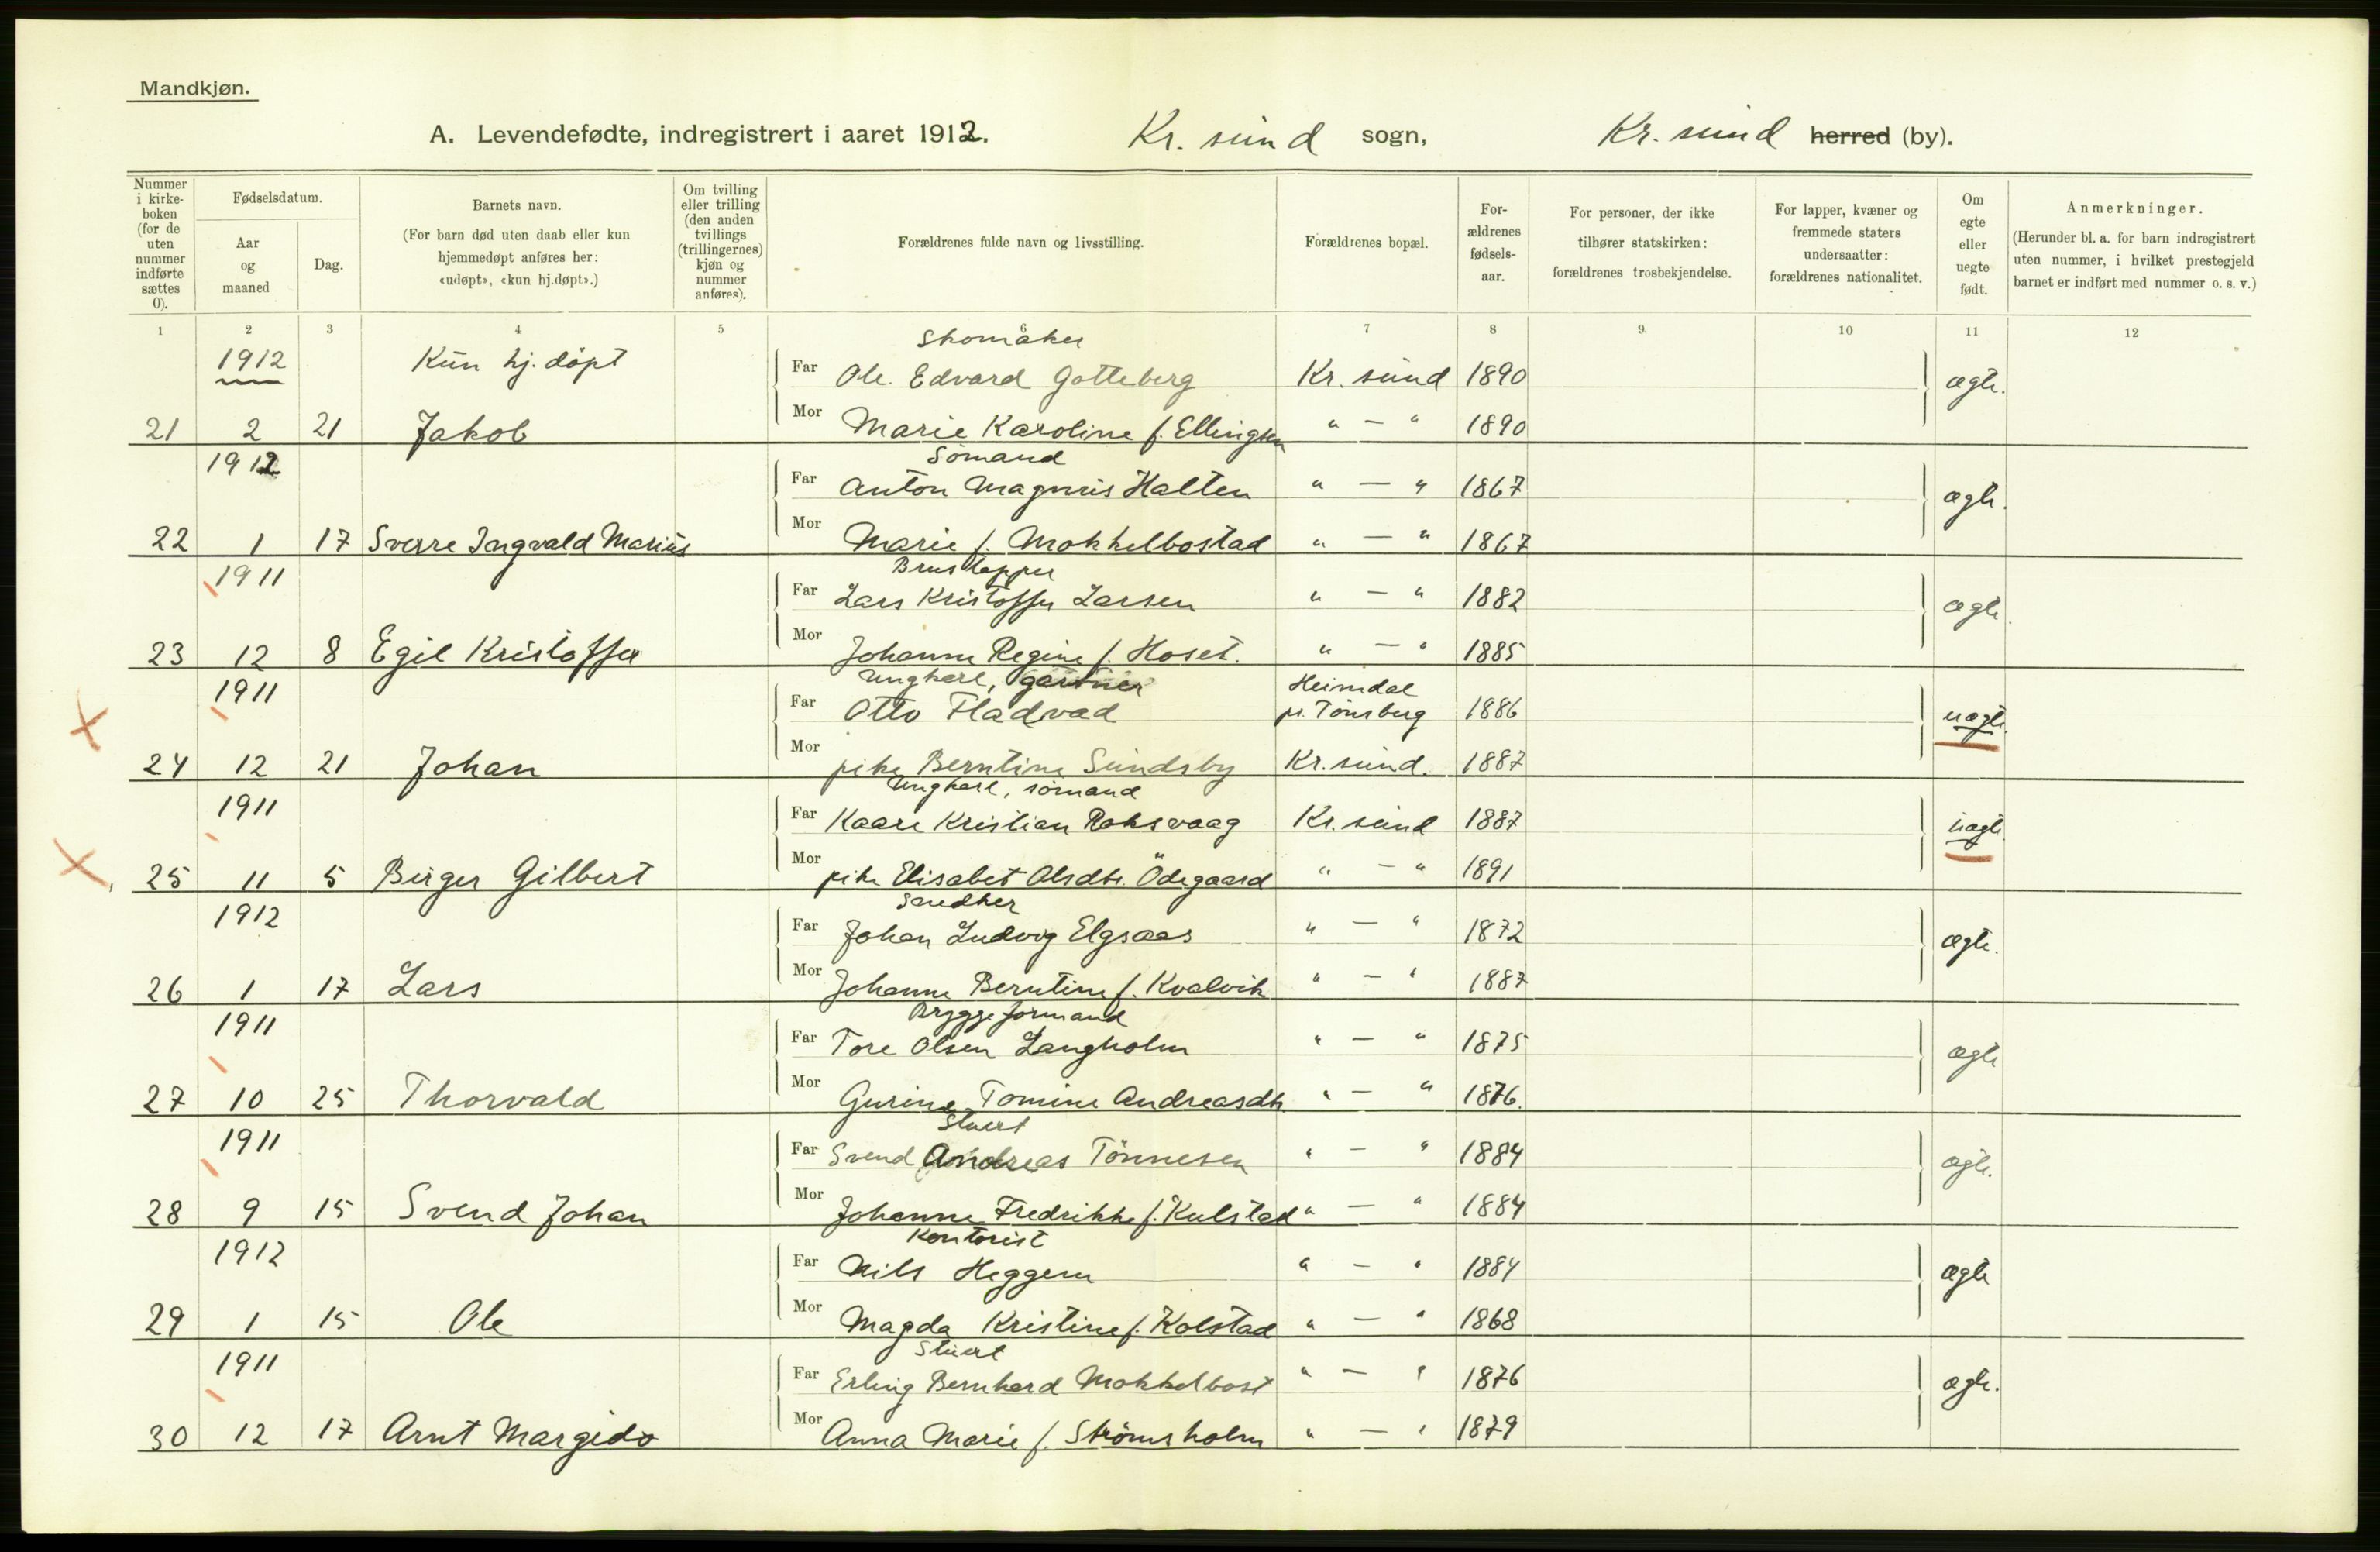 Mandkjøn.
A. Levendefødte, indregistrert i aaret 1912. Kr. sund sogn, Kr. sund herred (by).
Nummer i kirke-boken (for de uten nummer indførte sættes 0).
Fødselsdatum.
Aar og maaned
Dag.
Barnets navn.
(For barn død uten daab eller kun hjemmedøpt anføres her: «udøpt», «kun hj.døpt».)
Om tvilling eller trilling (den anden tvillings (trillingernes) kjøn og nummer anføres).
Forældrenes fulde navn og livsstilling.
Forældrenes bopæl.
For-ældrenes fødsels-aar.
For personer, der ikke tilhører statskirken: forældrenes trosbekjendelse.
For lapper, kvæner og fremmede staters undersaatter: forældrenes nationalitet.
Om egte eller uegte født.
Anmerkninger.
(Herunder bl. a. for barn indregistrert uten nummer, i hvilket prestegjeld barnet er indført med nummer o. s. v.)
1 2 3 4 5 6 7 8 9 10 11 12
Skomaker
1912 Kun hj. döpt Far Ole Edvard Gotteberg Kr. sund 1890 ægte.
21 2 21 Jakob Mor Marie Karoline f. Ellingsen " — " 1890
Sömand
1912 Far Anton Magnus Halten " — " 1867 ægte.
22 1 17 Sverre Ingvald Marius Mor Marie f. Mokkelbostad " — " 1867
Brustapper
1911 Far Lars Kristoffer Larsen " — " 1882 ægte.
23 12 8 Egil Kristoffer Mor Johanne Regine f. Hoset. " — " 1885
Ungkarl, gartner Heimdal
1911 Far Otto Fladvad pr. Tönsberg 1886 uægte.
24 12 21 Johan Mor pike Berntine Sundsby Kr. sund. 1887
Ungkarl, sömand
1911 Far Kaare Kristian Roksvaag Kr. sund 1887 uægte.
25 11 5 Birger Gilbert Mor pike Elisabet Olsdtr. Ödegaard " — " 1891
Snedker
1912 Far Johan Ludvig Elgsaas " — " 1872 ægte.
26 1 17 Lars Mor Johanne Berntine f. Kvalvik " — " 1887
Bryggeformand
1911 Far Tore Olsen Langholm " — " 1875 ægte
27 10 25 Thorvald Mor Gurine Tomine Andreasdtr " — " 1876.
Stuert
1911 Far Svend Andreas Tönnesen " — " 1884 ægte.
28 9 15 Svend Johan Mor Johanne Fredrikke f. Kulstad " — " 1884
Kontorist
1912 Far Nils Heggem " — " 1884 ægte
29 1 15 Ole Mor Magda Kristine f. Kolstad " — " 1868
Stuert
1911 Far Erling Bernhard Mokkelbost " — " 1876 ægte.
30 12 17 Arnt Margido Mor Anna Marie f. Strömsholm " — " 1879